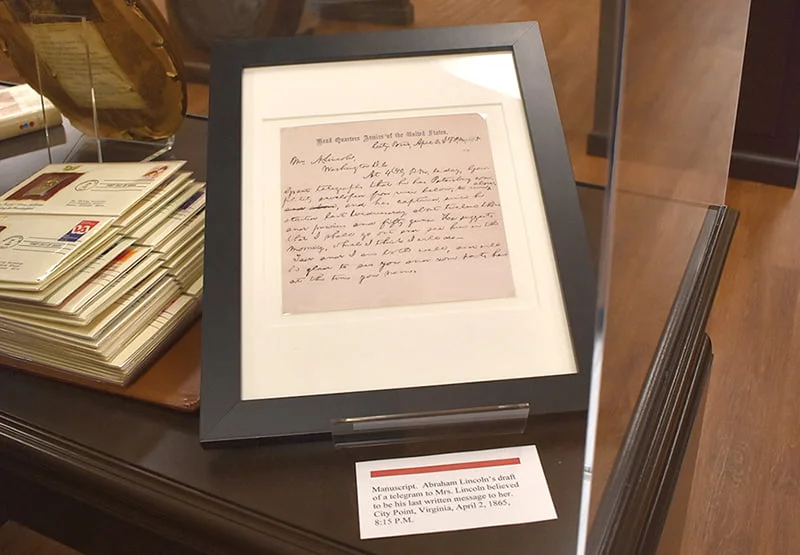 Head Quarters Armies of the United States,
City Point, April 2, 8/15 P.M. 1865
Mrs. A. Lincoln,
Washington D.C.
At 4/30 P.M. to-day Gen.
Grant telegraphs that he has Petersburg com-
pletely enveloped from river below to river above,
and has captured, since he
started last Wednesday, about twelve thousand
prisoners and fifty guns. He suggests
that I shall go out and see him in the
morning, which I think I will do.
Tad and I are both well, and will
be glad to see you and your party here
at the time you name.
Manuscript. Abraham Lincoln's draft
of a telegram to Mrs. Lincoln believed
to be his last written message to her.
City Point, Virginia, April 2, 1865,
8:15 P.M.